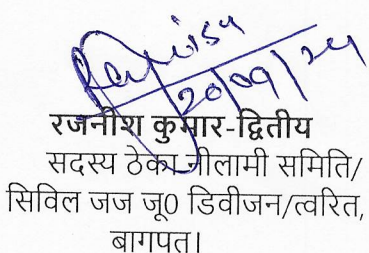 20/09/24
रजनीश कुमार-द्वितीय
सदस्य ठेका नीलामी समिति/
सिविल जज जू0 डिवीजन/त्वरित,
बागपत।